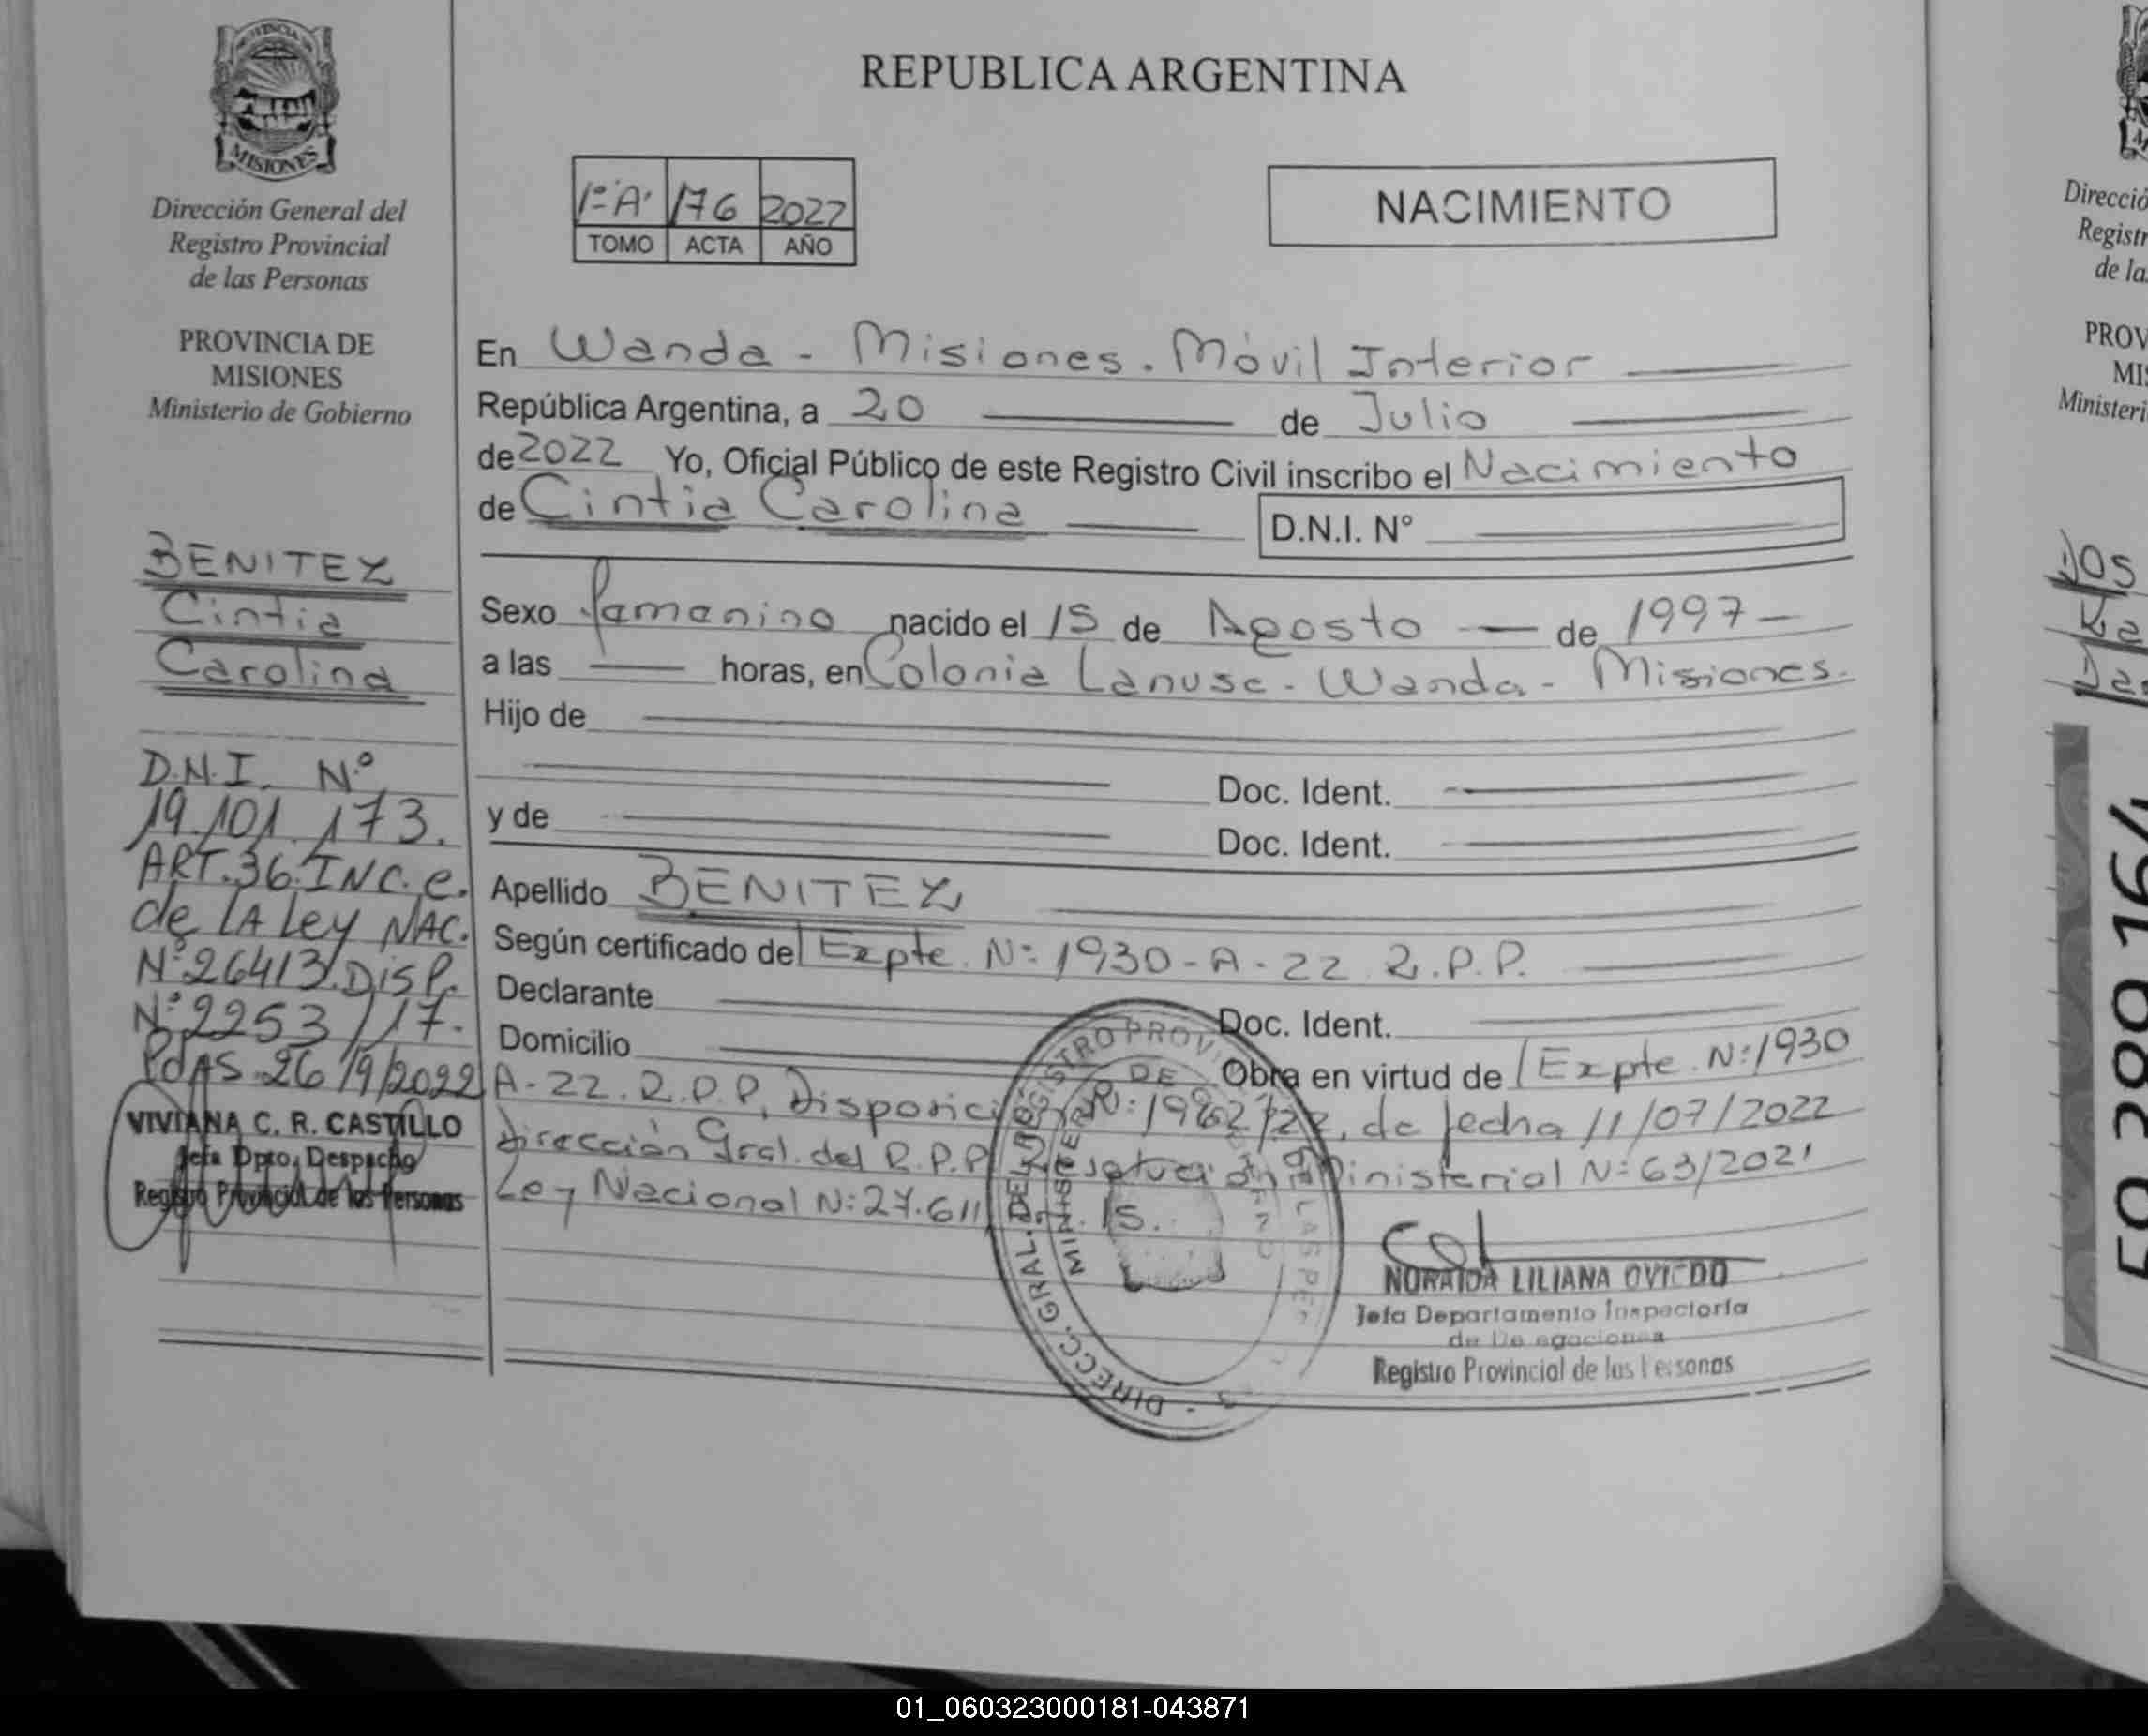 PROVINCIA DE
MISIONES
Dirección General del
Registro Provincial
de las Personas
PROVINCIA DE
MISIONES
Ministerio de Gobierno
BENITEZ
Cintia
Carolina
D.N.I. N°
19.101.173.
ART.36.INC.e.
de LA Ley NAC.
N°26413.DISP.
N°2253/17.
PdAS.26/9/2022
VIVIANA C. R. CASTILLO
Jefa Dpto. Despacho
Registro Provincial de las Personas
REPUBLICA ARGENTINA
1º"A" 176 2022
TOMO ACTA AÑO
NACIMIENTO
En Wanda - Misiones. Móvil Interior
República Argentina, a 20 de Julio
de 2022 Yo, Oficial Público de este Registro Civil inscribo el Nacimiento
de Cintia Carolina D.N.I. N°
Sexo famenino nacido el 15 de Agosto de 1997
a las horas, en Colonia Lanusse - Wanda - Misiones.
Hijo de
Doc. Ident.
y de Doc. Ident.
Apellido BENITEZ
Según certificado de Expte. N: 1930-A-22 R.P.P.
Declarante Doc. Ident.
Domicilio Obra en virtud de Expte. N:1930
A-22.R.P.P, Disposición N: /22, de fecha 11/07/2022
Dirección Gral. del R.P.P. Resolución Ministerial N: 63/2021
Ley Nacional N: 27.611 15.
DIRECC. GRAL. DEL REGISTRO PROV. DE LAS PER
MINISTERIO DE
NORAIDA LILIANA OVIEDO
Jefa Departamento Inspectoría
de Delegaciones
Registro Provincial de las Personas
Direcció
Registr
de la
PROV
MIS
Ministeri
DOS
01_060323000181-043871